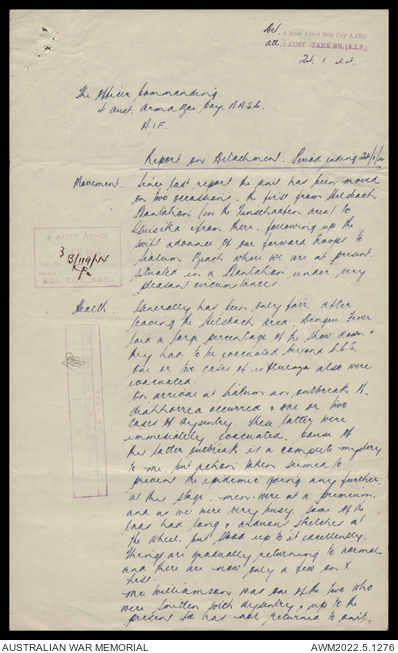 Det. 4 Aust Armd Bde Coy AASC
att. 1 AUST. TANK BN. (A.I.F.)
24. 1. 44.
The Officer Commanding.
4 Aust. Armd Bde Coy A.A.S.C.
A.I.F.
Report on Detachment. Period ending 24/1/44
Movement. Since last report the unit has been moved
on two occasions. the first from Heldsbach
Plantation (in the Finschhafen area) to
Kwisika & from there, following up the
swift advance of our forward troops to
Sialum Beach where we are at present
situated in a Plantation under very
pleasant circumstances.
4 AUST ARMD
3/119/44
Health Generally has been only fair. after
leaving the Heldsbach area. Dengue Fever
laid a large percentage of the show down &
they had to be evacuated beyond C.C.S.
One or two cases of influenza also were
evacuated.
On arrival at Sialum an outbreak of
diahhorrea occurred & one or two
cases of dysentry. These latter were
immediately evacuated. Cause of
the latter outbreak is a complete mystery
to me, but action taken seemed to
prevent the epidemic going any further.
at this stage. men were at a premium.
and as we were very busy. some of the
lads had long & arduous stretches at
the wheel, but stood up to it excellently.
Things are gradually returning to normal
and there are now only a few on X
list.
Mr Williamson was one of the two who
were smitten with dysentry & up to the
present has not returned to unit.
AUSTRALIAN WAR MEMORIAL
AWM2022.5.1276